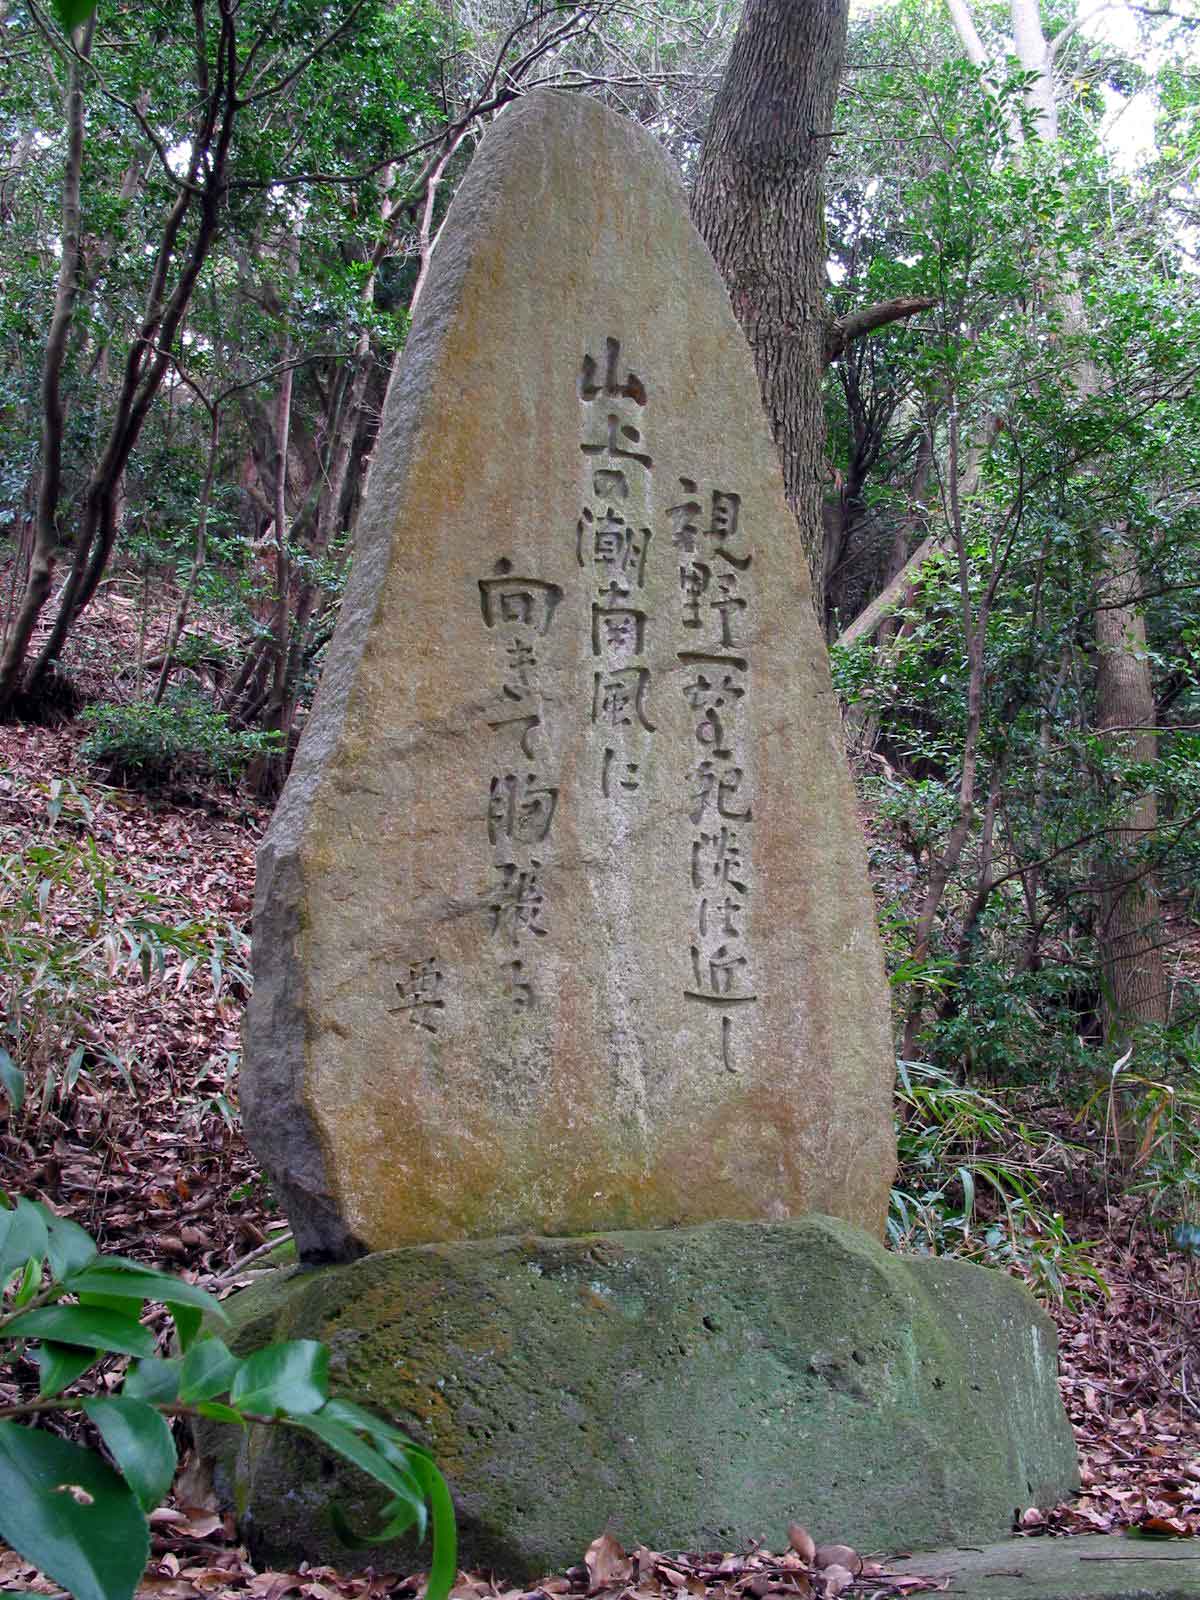 視野一望紀淡は近し
山上の潮南風に
向きて胸張る
要